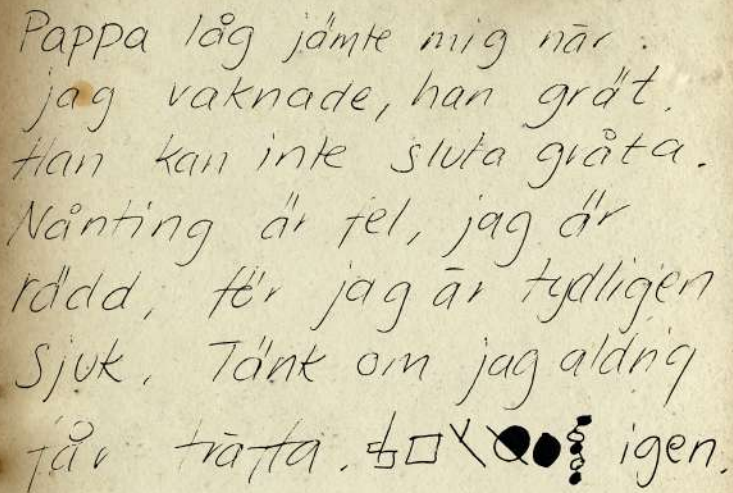 Pappa låg jämte mig när
jag vaknade, han grät.
Han kan inte sluta gråta.
Nånting är fel, jag är
rädd, för jag är tydligen
sjuk. Tänk om jag aldrig
får träffa. igen.